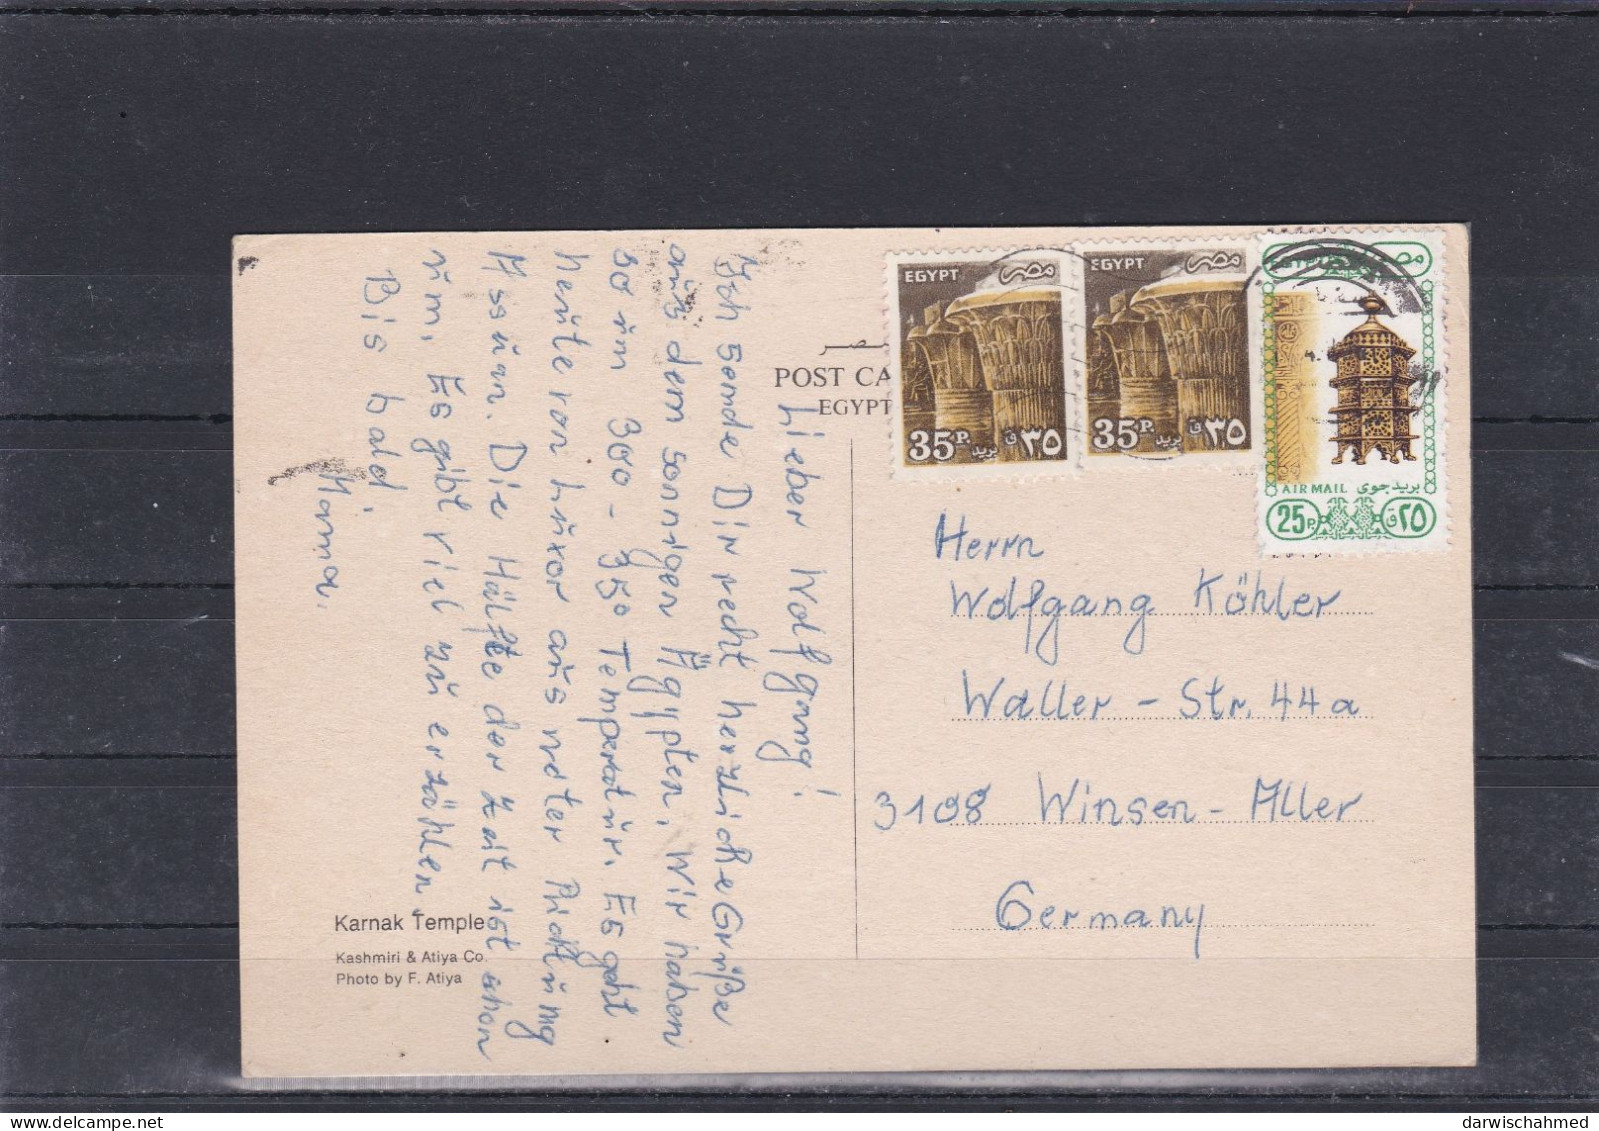 Lieber Wolfgang!
Ich sende Dir recht herzliche Grüße
aus dem sonnigen Ägypten. Wir haben
so um 300 - 350 Temperatur. Es geht
heute von Luxor aus weiter Richtung
Assuan. Die Hälfte der Zeit ist schon
um. Es gibt viel zu erzählen.
Bis bald
Mama.
مصر
POST CA
EGYPT
EGYPT مصر
35P. بريد ٣٥ ق
EGYPT مصر
35P. بريد ٣٥ ق
EGYPT مصر
AIR MAIL بريد جوى
25P. ٢٥ ق
Herrn
Wolfgang Köhler
Waller - Str. 44a
3108 Winsen - Aller
Germany
Karnak Temple
Kashmiri & Atiya Co.
Photo by F. Atiya
darwischahmed